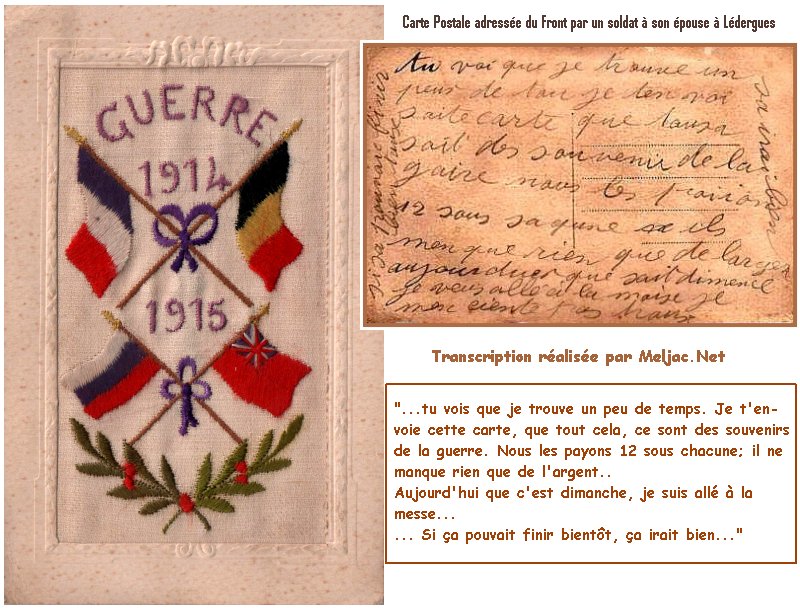 Carte Postale adressée du Front par un soldat à son épouse à Lédergues
GUERRE
1914
1915
tu voi que je trouve un
peus de tan je ten voi
saite carte que tousa
sait des souvenir de la
gaire nous les
12 sous saqune sa ils
menque rien que de largen
que sait dimence
je veus alle a la maise je
si sa
sa irai bien
Transcription réalisée par Meljac.Net
"...tu vois que je trouve un peu de temps. Je t'en-
voie cette carte, que tout cela, ce sont des souvenirs
de la guerre. Nous les payons 12 sous chacune; il ne
manque rien que de l'argent..
Aujourd'hui que c'est dimanche, je suis allé à la
messe...
... Si ça pouvait finir bientôt, ça irait bien..."